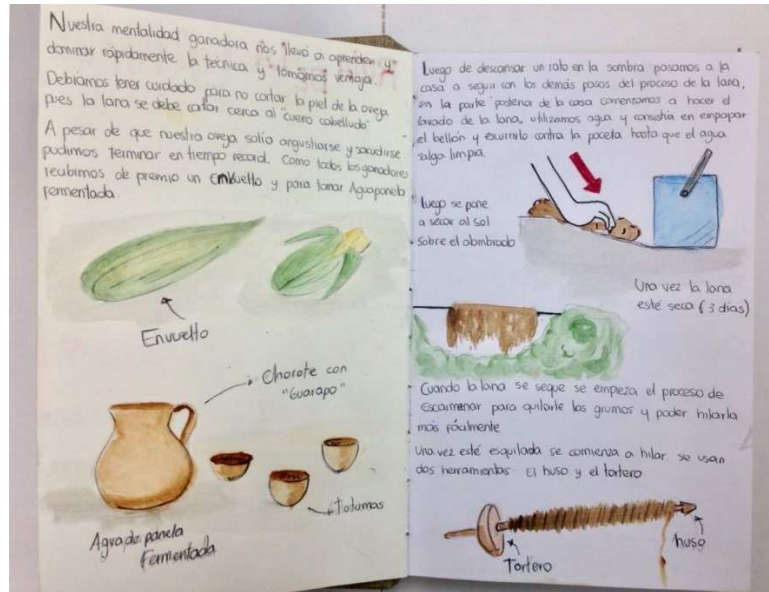 Nuestra mentalidad ganadora nos llevó a aprender y
dominar rápidamente la técnica y tomamos ventaja.
Debíamos tener cuidado para no cortar la piel de la oveja
pues la lana se debe cortar cerca al "cuero cabelludo"
A pesar de que nuestra oveja solía angustiarse y sacudirse
pudimos terminar en tiempo record. Como todos los ganadores
recibimos de premio un envuelto y para tomar Aguapanela
fermentada.
Envuelto
Chorote con
"Guarapo"
Totumas
Agua de panela
Fermentada
Luego de descansar un rato en la sombra pasamos a la
casa a seguir con los demás pasos del proceso de la lana,
en la parte posterior de la casa comenzamos a hacer el
lavado de la lana, utilizamos agua y consistía en empapar
el bellón y escurrirlo contra la poceta hasta que el agua
salga limpia.
Luego se pone
a secar al sol
sobre el alambrado
Una vez la lana
esté seca (3 días)
Cuando la lana se seque se empeza el proceso de
escarmenar para quitarle los grumos y poder hilarla
más fácilmente
Una vez esté esquilada se comienza a hilar. se usan
dos herramientas El huso y el tortero
Tortero
huso